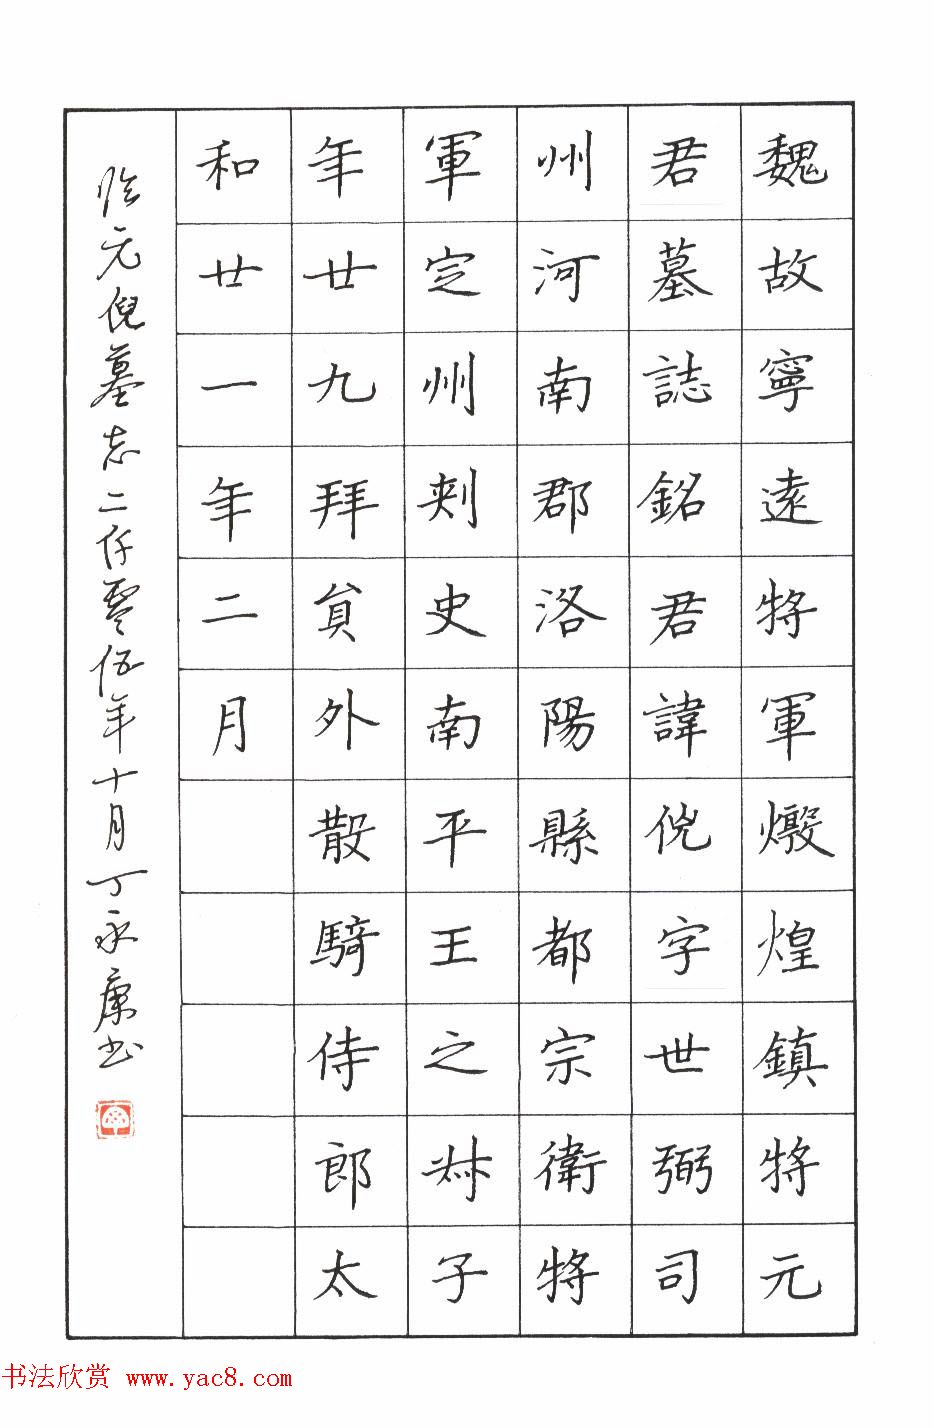 魏故寧遠將軍燉煌鎮將元
君墓誌銘君諱倪字世弼司
州河南郡洛陽縣都宗衛將
軍定州刺史南平王之叔子
年廿九拜貟外散騎侍郎太
和廿一年二月
临元倪墓志二仟零伍年十月丁永康书
书法欣赏 www.yac8.com